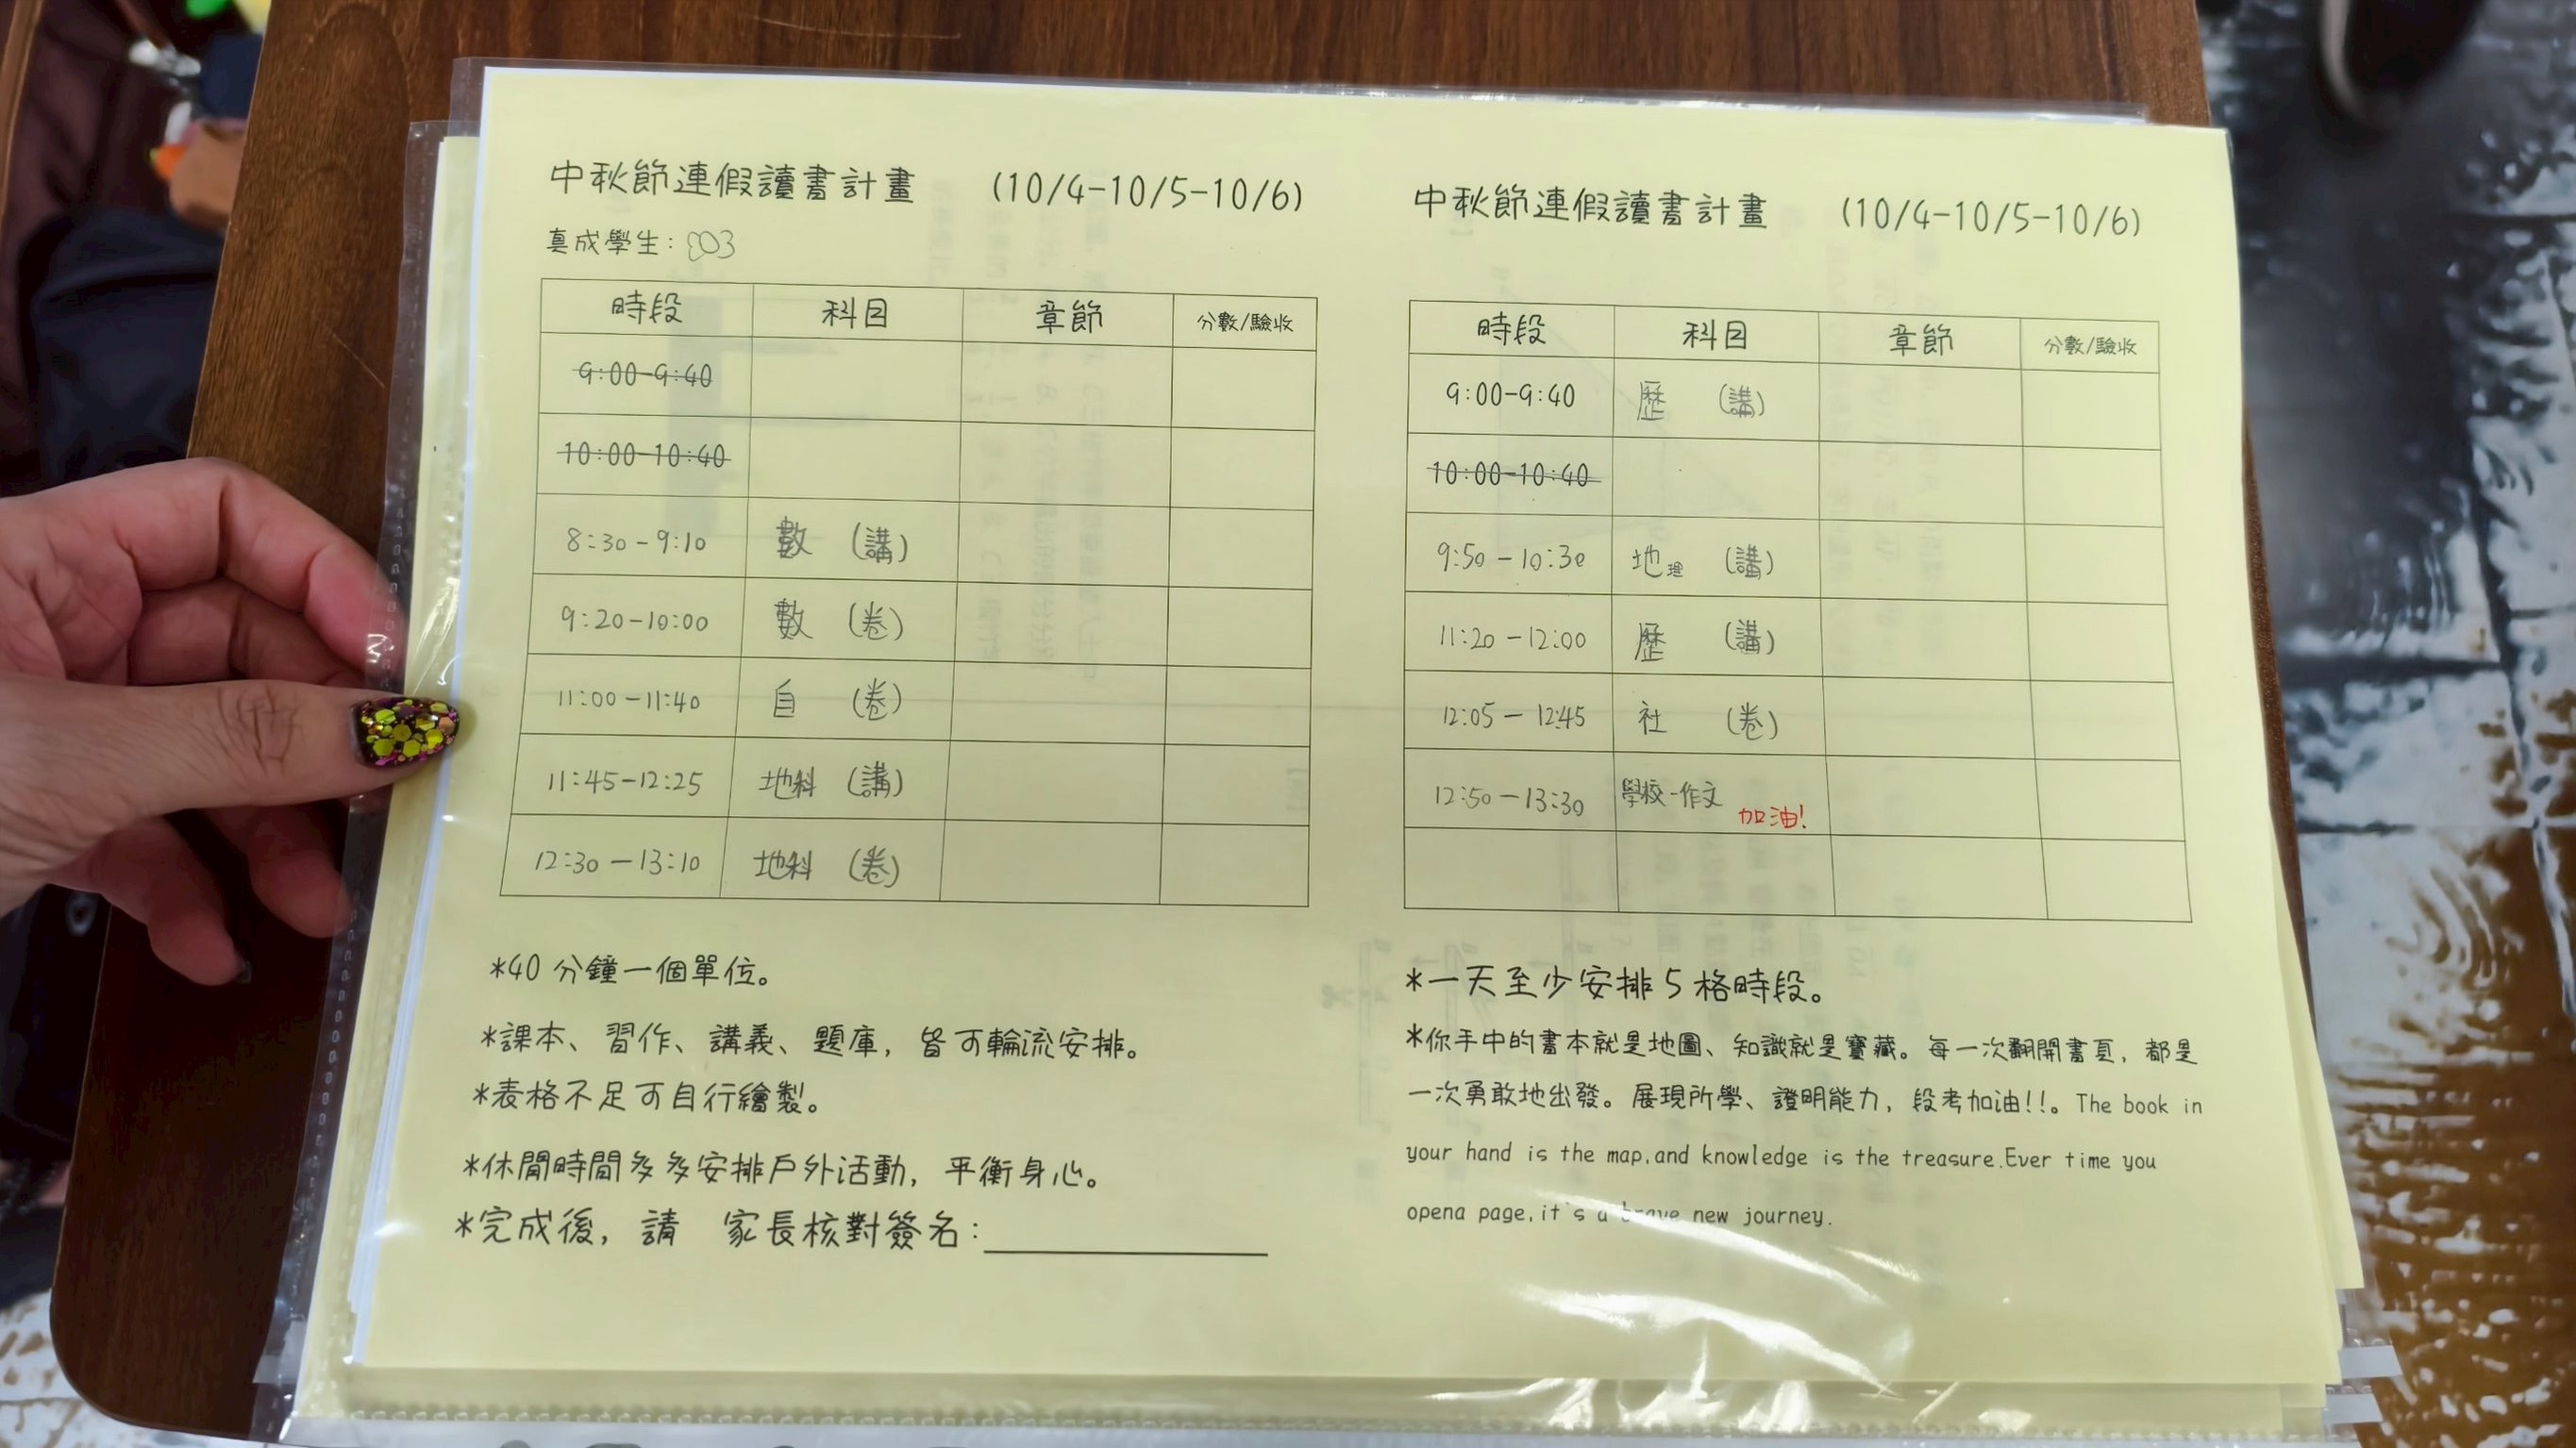 中秋節連假讀書計畫 (10/4-10/5-10/6)
真成學生: 803
時段 科目 章節 分數/驗收
9:00-9:40
10:00-10:40
8:30-9:10 數 (講)
9:20-10:00 數 (卷)
11:00-11:40 自 (卷)
11:45-12:25 地科 (講)
12:30-13:10 地科 (卷)
*40 分鐘一個單位。
*課本、習作、講義、題庫, 皆可輪流安排。
*表格不足可自行繪製。
*休閒時間多多安排戶外活動, 平衡身心。
*完成後, 請 家長核對簽名:
中秋節連假讀書計畫 (10/4-10/5-10/6)
時段 科目 章節 分數/驗收
9:00-9:40 歷 (講)
10:00-10:40
9:50-10:30 地理 (講)
11:20-12:00 歷 (講)
12:05-12:45 社 (卷)
12:50-13:30 學校-作文 加油!
*一天至少安排 5 格時段。
*你手中的書本就是地圖、知識就是寶藏。每一次翻開書頁, 都是
一次勇敢地出發。展現所學、證明能力, 段考加油!!。The book in
your hand is the map,and knowledge is the treasure.Ever time you
opena page,it`s a brave new journey.